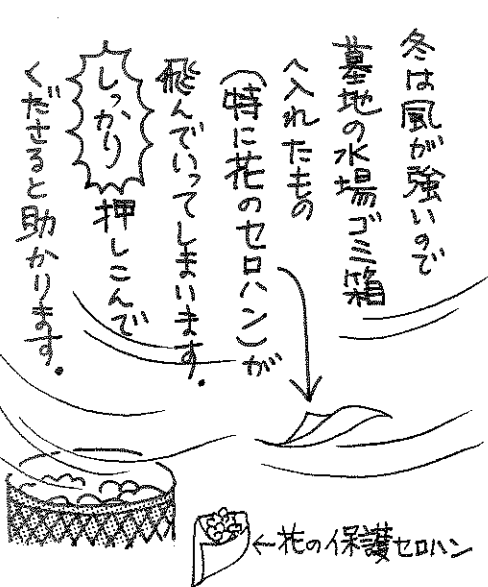 冬は風が強いので
墓地の水場ゴミ箱
へ入れたもの
(特に花のセロハン)が
飛んでいってしまいます。
しっかり押しこんで
くださると助かります。
←花の保護セロハン